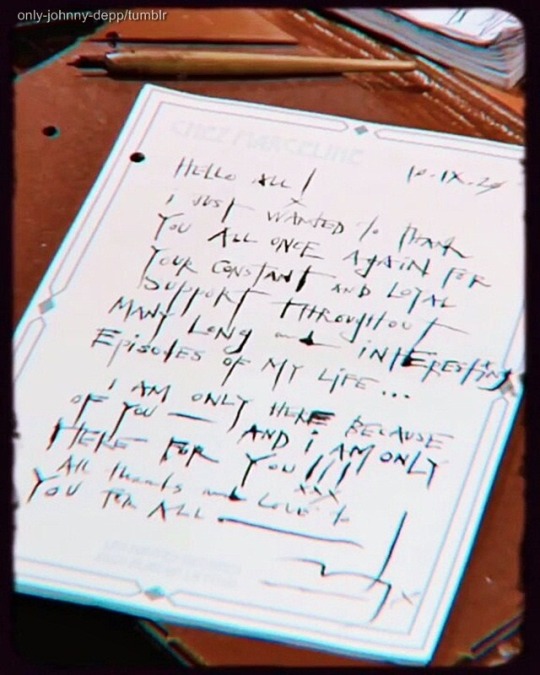 only-johnny-depp/tumblr
CHEZ MARCELINE
10.IX.24
HELLO ALL!
i JUST WANTED to THANK
YOU ALL ONCE AGAiN FOR
YOUR CONSTANT AND LOYAL
SuppoRT THROUGHOUT
MANY LONG and iNTERESTiNG
EpisoDES OF MY LiFE...
i AM ONLY HERE BECAUSE
OF YOU — AND i AM ONLY
HERE FOR YOU!!!
XXX
All thanks and Love to
YOU FOR ALL